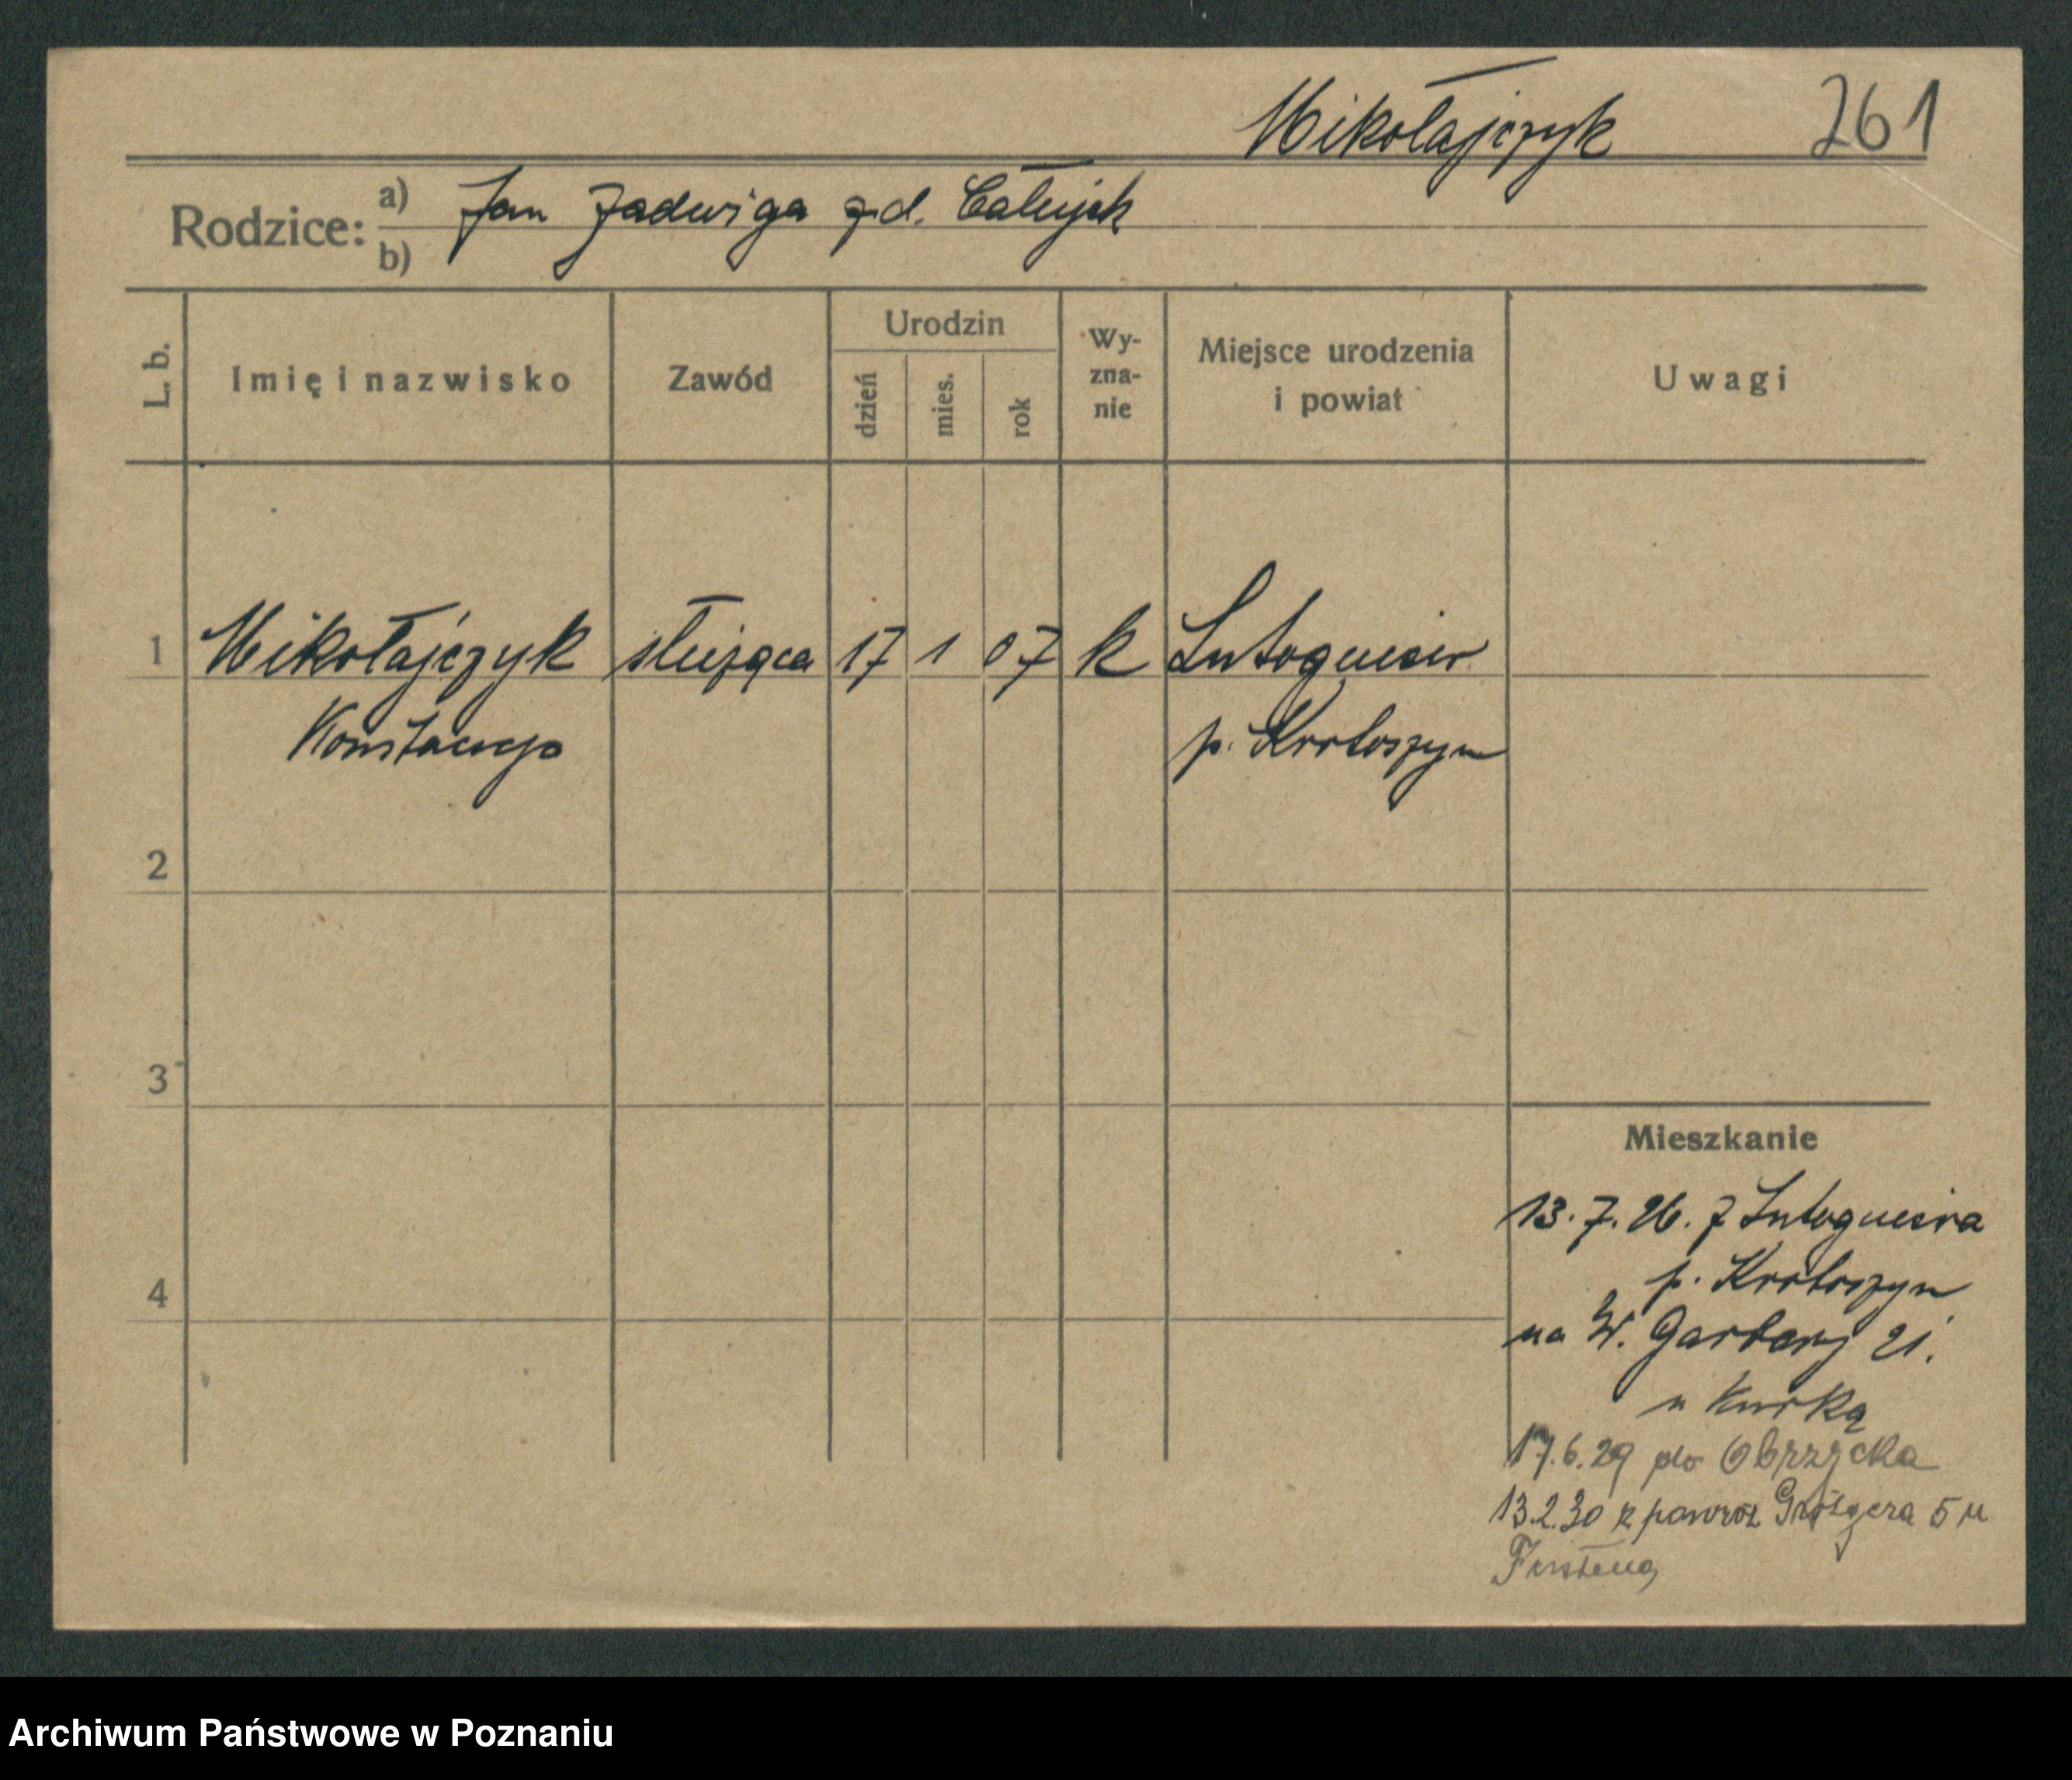 Mikołajczyk 261
Rodzice: a) Jan Jadwiga zd. Całujek
b)
L. b. Imię i nazwisko Zawód Urodzin dzień mies. rok Wy-zna-nie Miejsce urodzenia i powiat Uwagi
1 Mikołajczyk służąca 17 1 07 k Lutogniew
Konstancja p. Krotoszyn
2
3
Mieszkanie
13.7.26. z Lutogniewa
4 p. Krotoszyn
na W. Garbary 21.
u Kurka
17.6.29 do Obrzycka
13.2.30 z powrot Grotgera 5 u
Archiwum Państwowe w Poznaniu